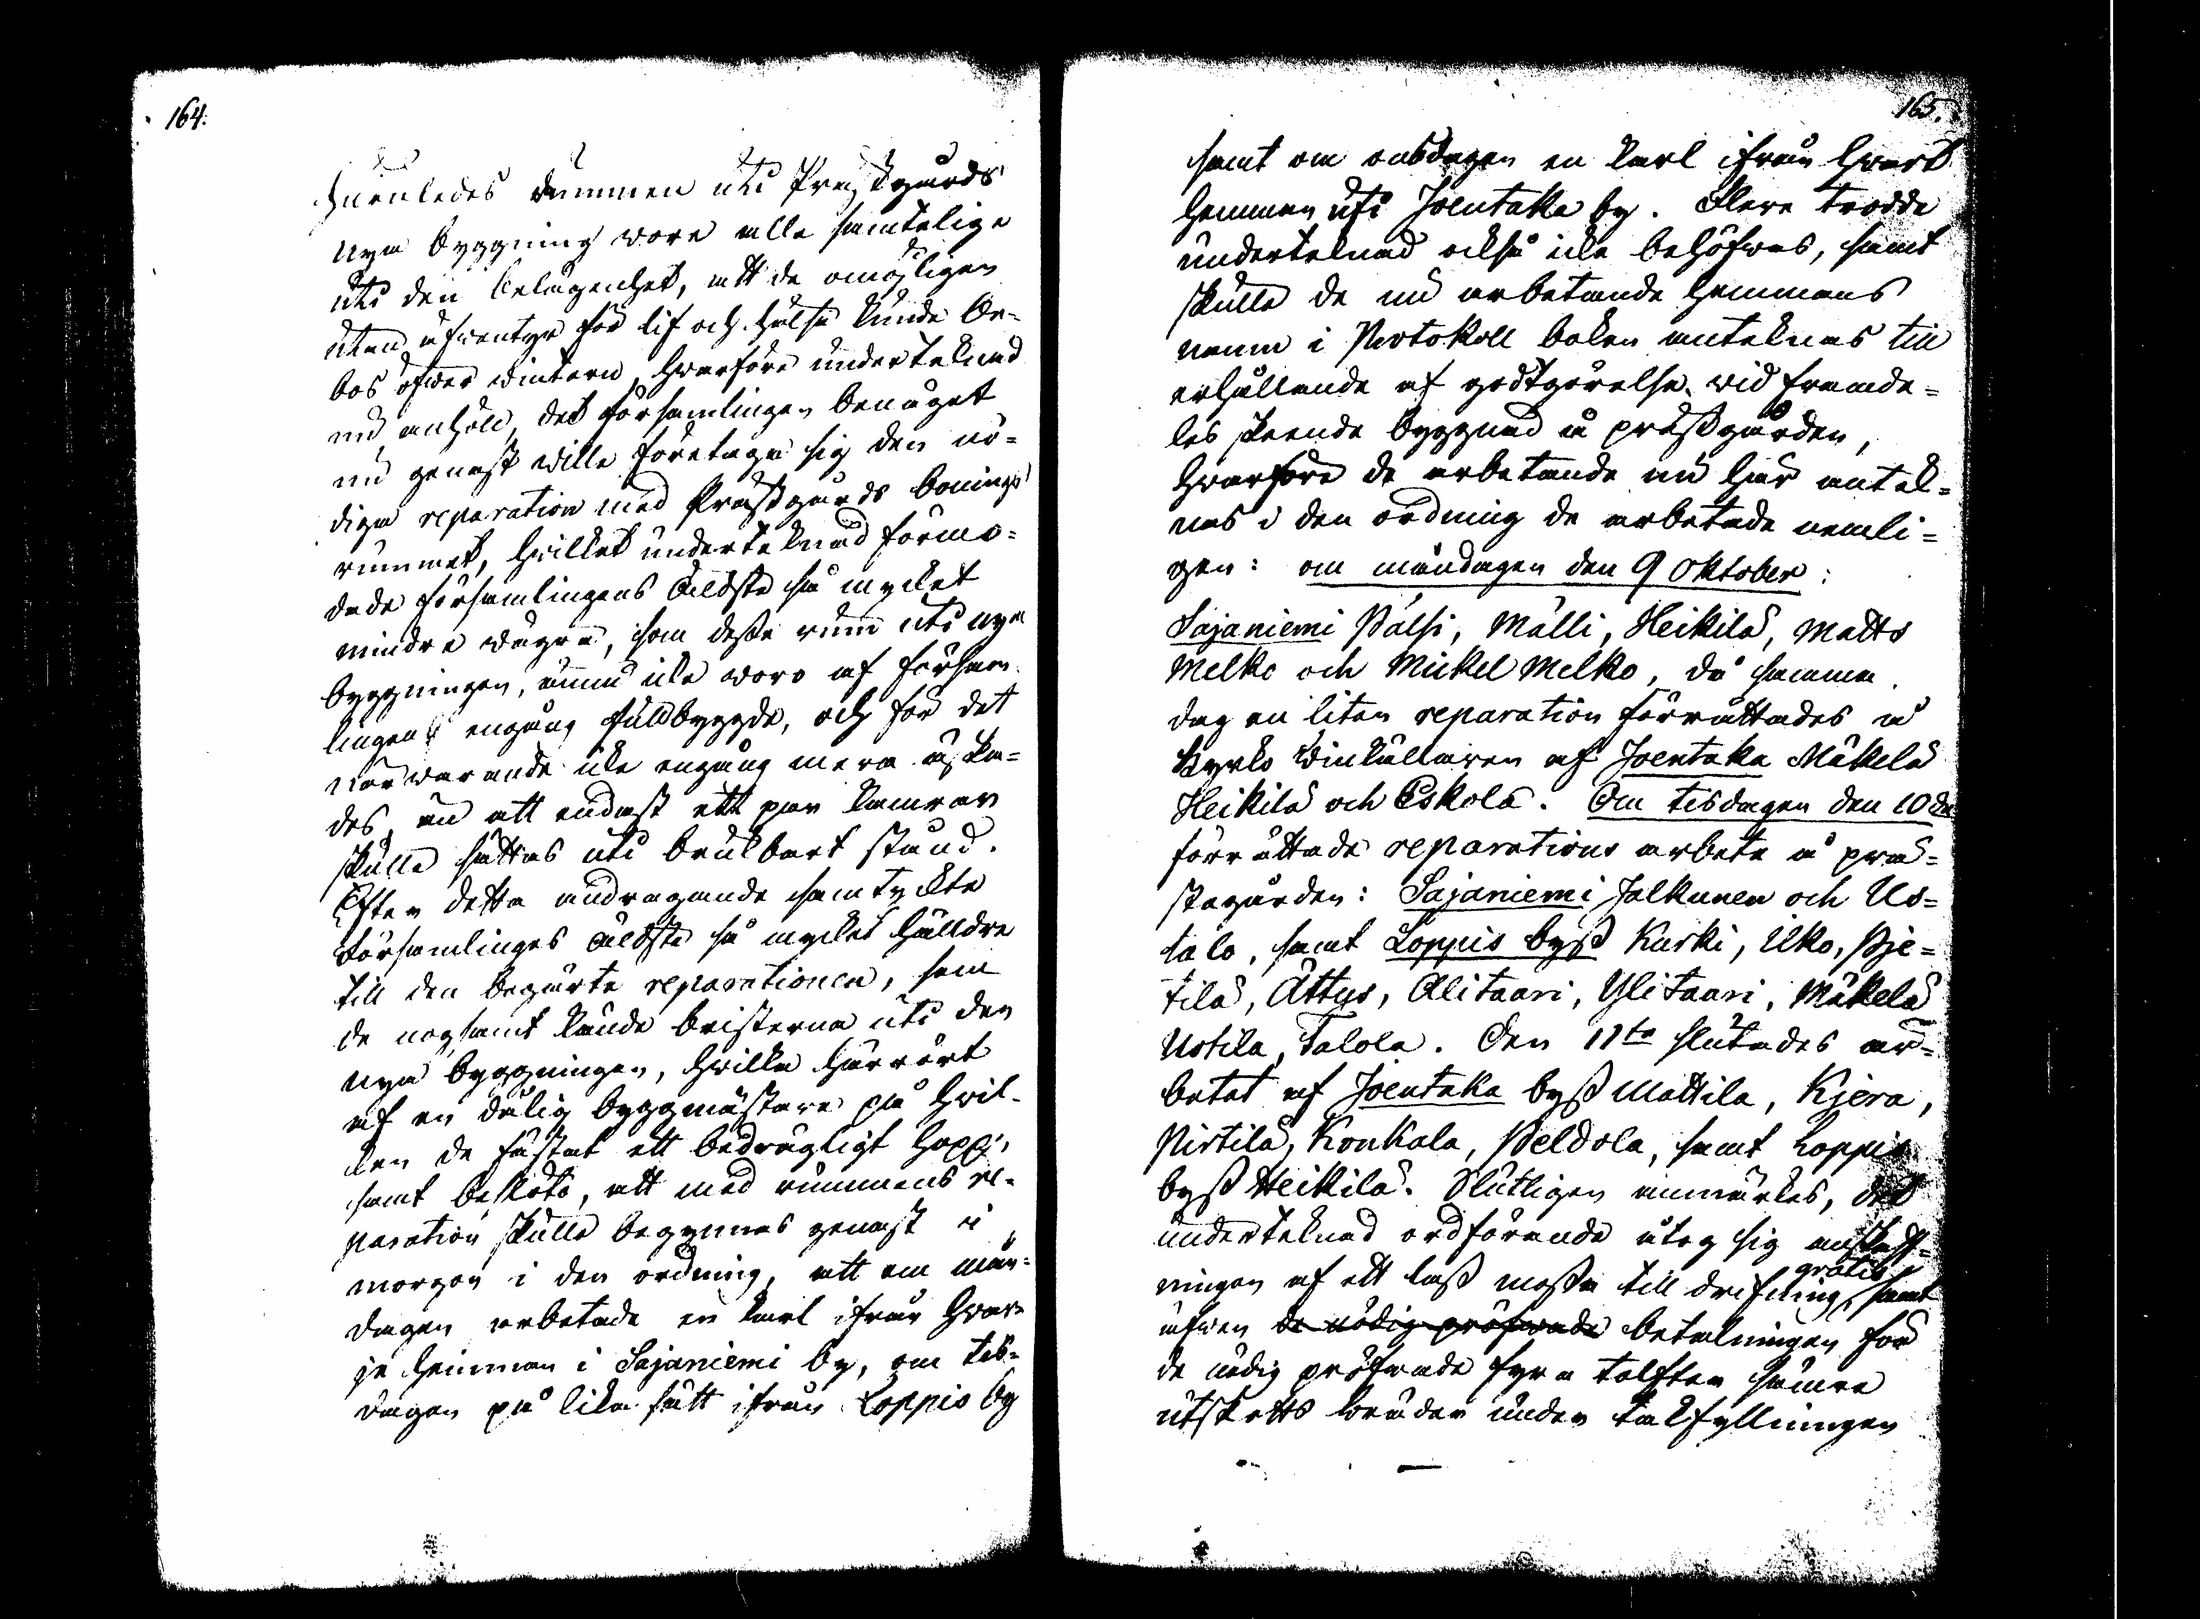 164.
huruledes rummen uti Prestgårds
nya byggning wore alla samtelige
uti den belägenhet, att de omöjligen
utan äfwentyr för lif och hälsa kunde be-
bos öfwer wintern, hwarföre undertecknad
nu anhöll, det församlingen benäget
nu genast wille företaga sig den nö-
diga reparation med Prestgårds bonings
rummet, hwilket undertecknad förmo-
dade församlingens äldste så mycket
mindre wägra, som desse rum uti nya
byggningen, ännu icke woro af försam-
lingen engång fullbyggde, och för det
närwarande icke engång mera äska-
des, än att endast ett par kamrar
skulle sättas uti brukbart stånd.
Efter detta andragande samtyckte
församlinges äldste så mycket hälldre
till den begärte reparationen, som
de nogsamt kände bristerna uti den
nya byggningen, hwilka härrört
af en dålig byggmästare på hwil-
ken de fästat ett bedrägligt hopp,
samt beslöto, att med rummens re-
paration skulle begynnas genast i
morgon i den ordning, att om mån-
dagen arbetade en karl ifrån hwar-
je hemman i Sajaniemi by, om tis-
dagen på lika sätt ifrån Loppis by
165.
samt om onsdagen en karl ifrån hwart
hemman uti Joentaka by. Flere trodde
undertecknad också icke behöfwas, samt
skulle de nu arbetande hemmans
namn i Protokoll boken anteknas till
erhållande af godtgörelse wid framde-
les skeende byggnad å prästgården,
hwarföre de arbetande nu här antek-
nas i den ordning de arbetade nemli-
gen: om måndagen den 9 Oktober:
Sajaniemi Pälsi, Mälli, Heikilä, Matts
Melko och Mickel Melko, då samma
dag en liten reparation förrättades å
Kyrko winkällaren af Joentaka Mäkelä
Heikilä och Eskola. Om tisdagen den 10de
förrättade reparations arbete å prä-
stegården: Sajaniemi Jalkanen och Us-
talo, samt Loppis byß Kurki, Ilko, Pje-
tilä, Ättys, Alitaari, Ylitaari, Mäkelä
Ustila, Talola. Den 11te slutades ar-
betet af Joentaka byß Mattila, Kjera,
Pirtilä, Konkala, Peldola, samt Loppis
byß Heikilä. Slutligen anmärkes, det
undertecknad ordförande åtog sig anskaff-
ningen af ett laß moßa till drifning gratis, samt
äfwen de nödig pröfwade betalningen för
de nödig pröfwade fyra tolfter sämre
utskotts bräder under takfyllningen